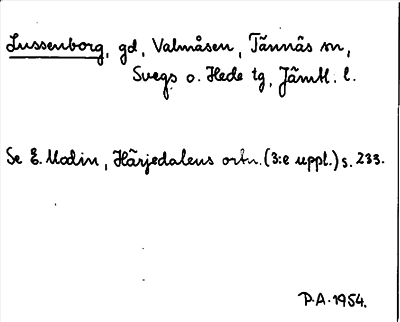 Lussenborg, gd, Valmåsen, Tännäs sn,
Svegs o. Hede tg, Jämtl. l.
Se E. Modin, Härjedalens ortn. (3:e uppl.) s. 233.
P.A. 1954.